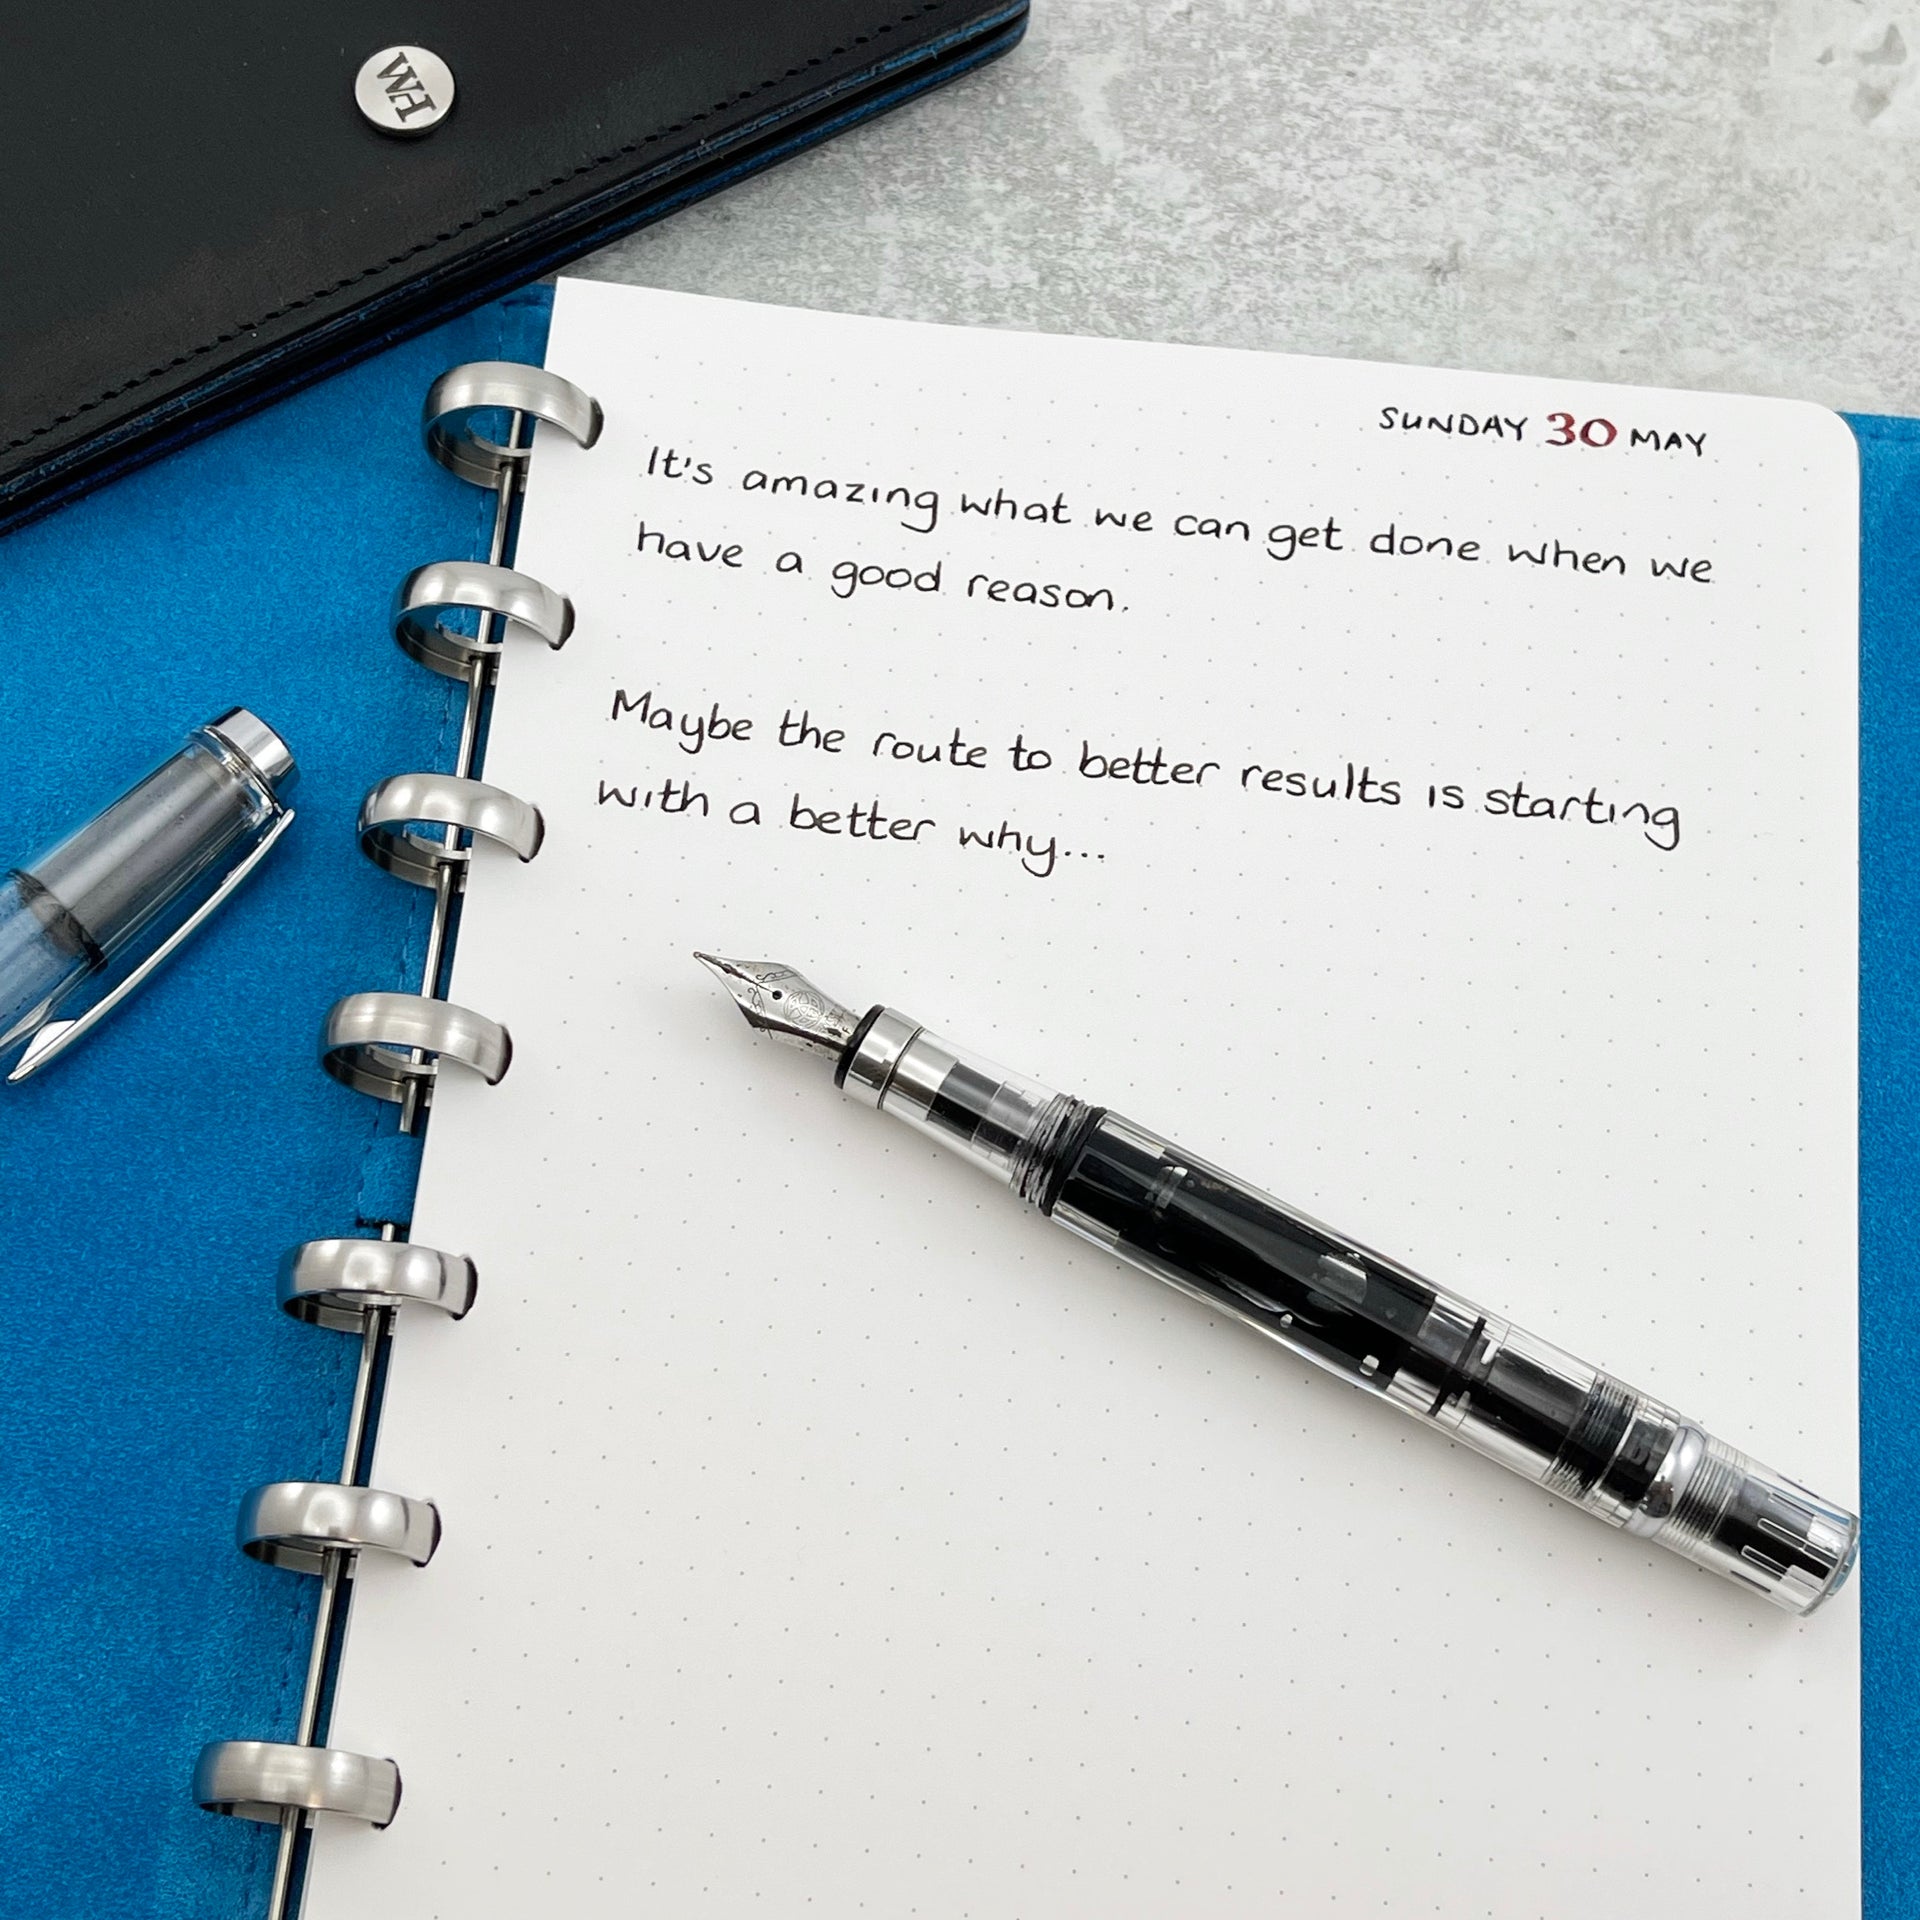 WM
SUNDAY 30 MAY
It's amazing what we can get done when we
have a good reason.
Maybe the route to better results is starting
with a better why...